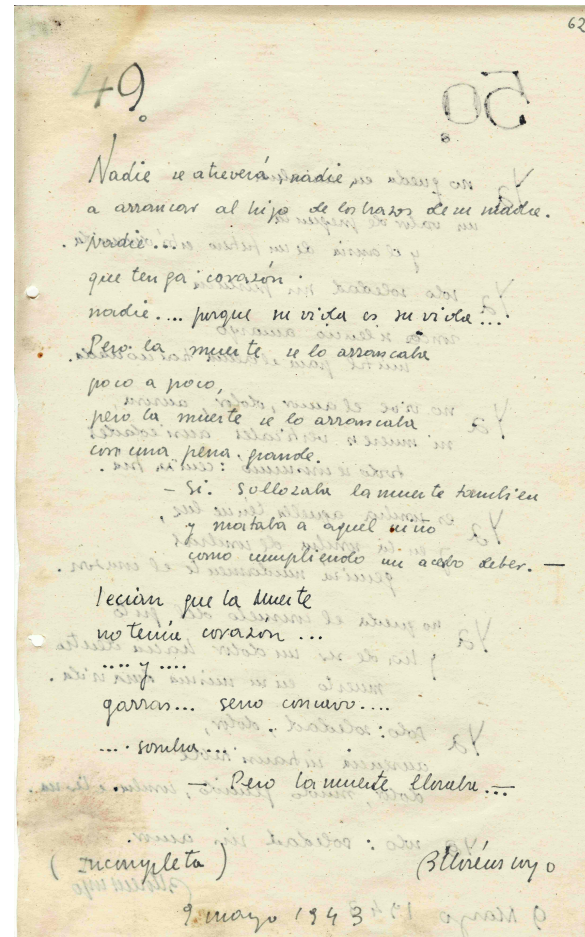 62
49.
Nadie se atreverá, nadie,
a arrancar al hijo de los brazos de su madre.
Nadie...
que tenga corazón.
nadie.... porque su vida es su vida...
Pero la muerte se lo arrancaba
poco a poco,
pero la muerte se lo arrancaba
con una pena grande.
- Si. Sollozaba la muerte tambien
y mataba a aquel niño
como cumpliendo un acerbo deber. -
Decian que la Muerte
no tenía corazón ...
.... y ....
garras... seno concavo....
.... sombra...
- Pero la muerte lloraba. -
(Incompleta)
9 mayo 1943